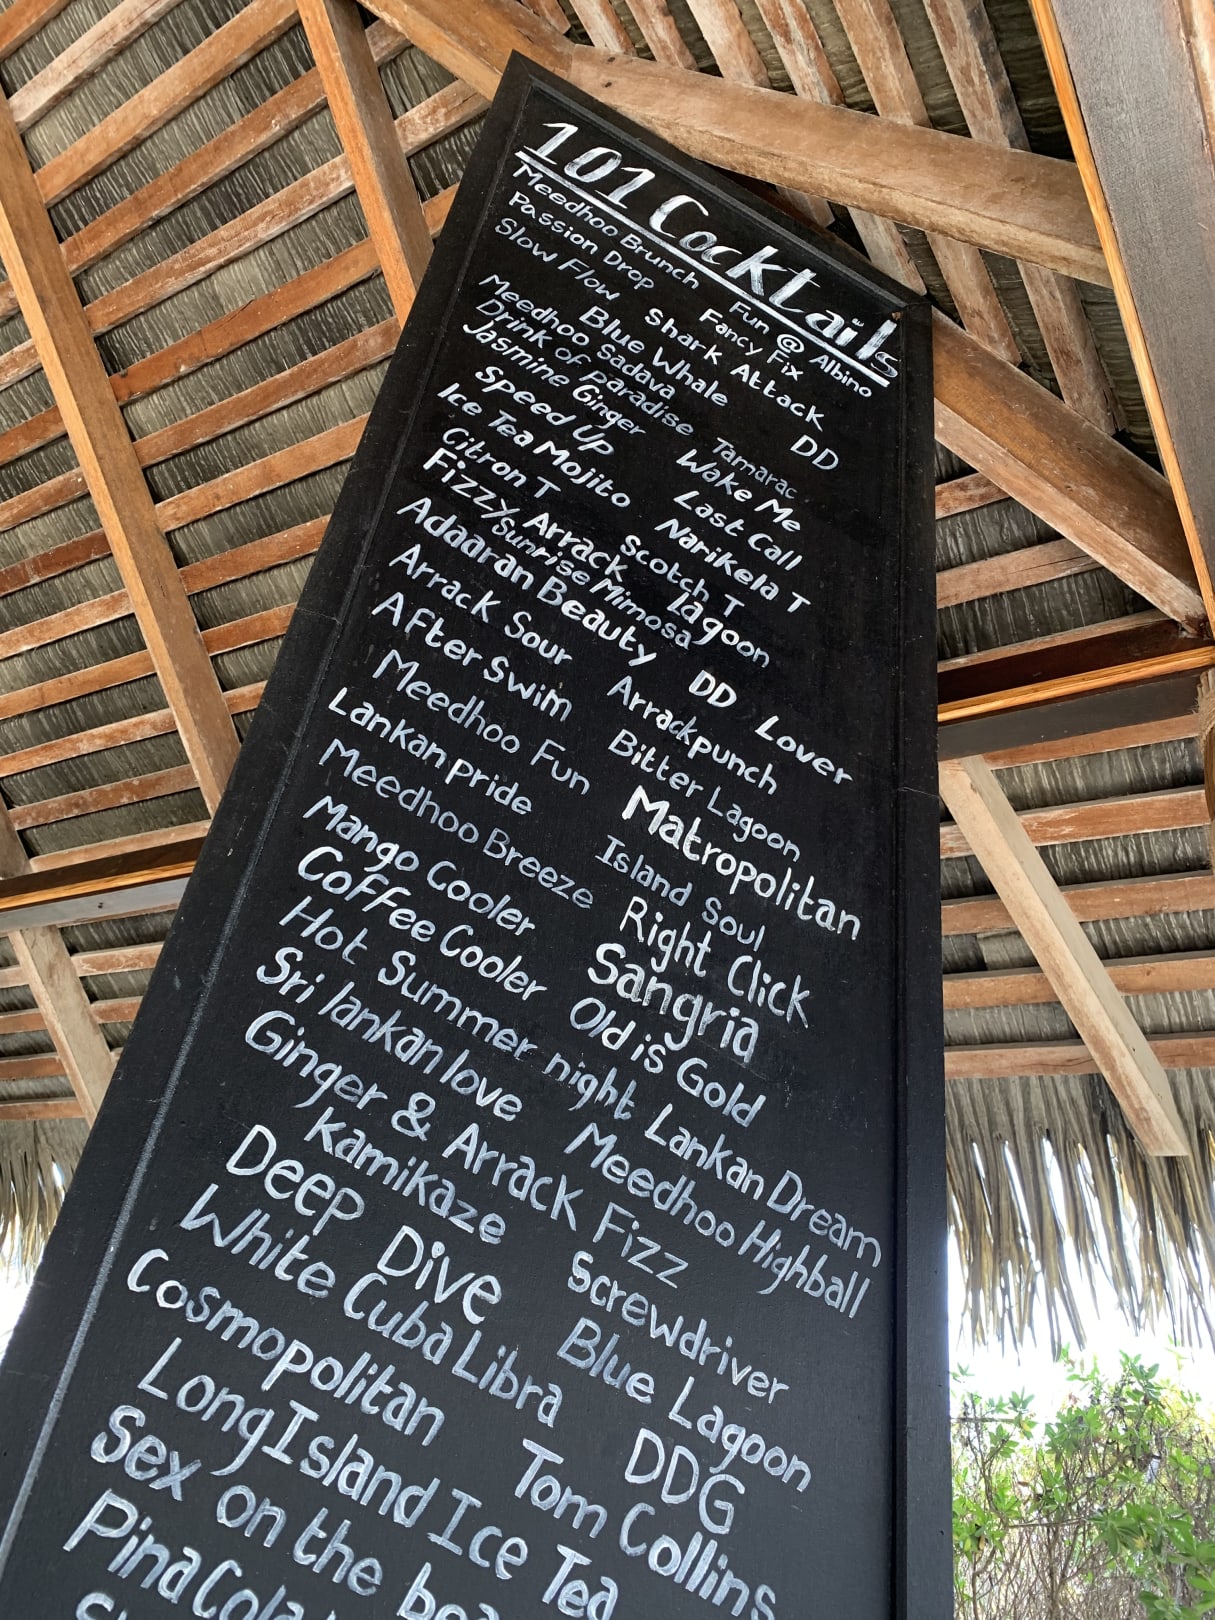 101 Cocktails
Meedhoo Brunch Fun @ Albino
Passion Drop Fancy Fix
Slow Flow Shark Attack
Blue Whale DD
Meedhoo Sadava
Drink of paradise Tamarac
Jasmine Ginger Wake Me
Speed Up Last Call
Ice Tea Mojito Narikela T
Citron T Scotch T
Fizzy Arrack Lagoon
Sunrise Mimosa
Adaaran Beauty DD Lover
Arrack Sour Arrackpunch
After Swim Bitter Lagoon
Meedhoo Fun Matropolitan
Lankan pride Island Soul
Meedhoo Breeze Right Click
Mango Cooler Sangria
Coffee Cooler Old is Gold
Hot Summer night Lankan Dream
Sri lankan love Meedhoo Highball
Ginger & Arrack Fizz
Kamikaze Screwdriver
Deep Dive Blue Lagoon
White Cuba Libra DDG
Cosmopolitan Tom Collins
Long Island Ice Tea
Sex on the
Pina